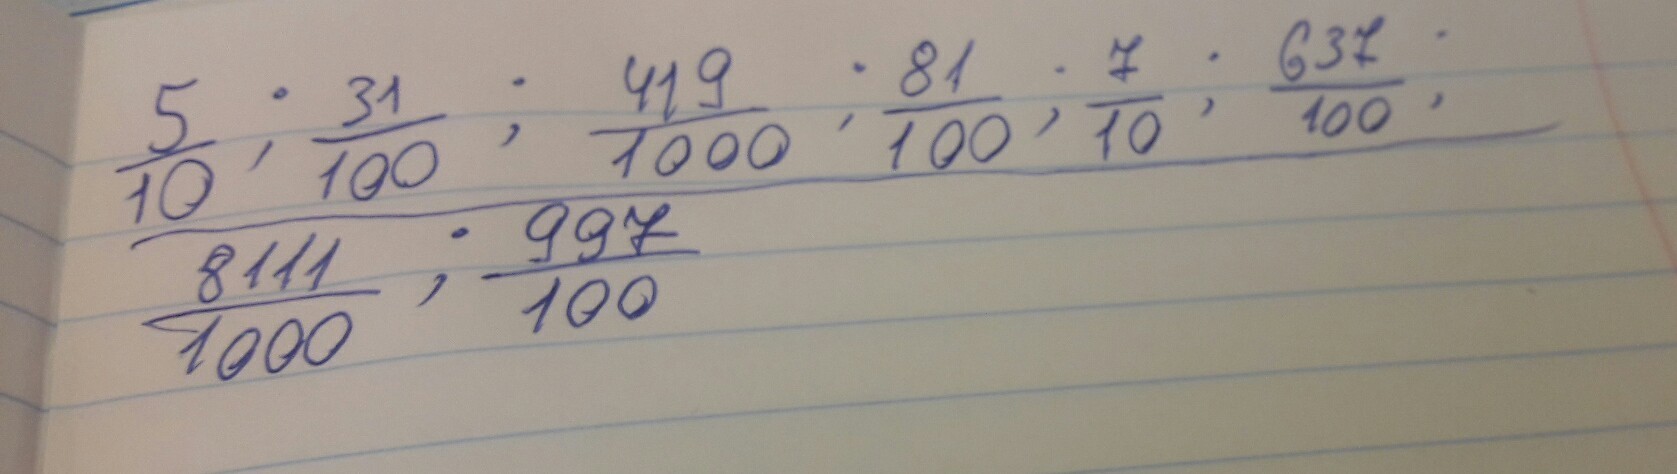 5/10 ; 31/100 ; 419/1000 ; 81/100 ; 7/10 ; 637/100 ;
8111/1000 ; 997/100